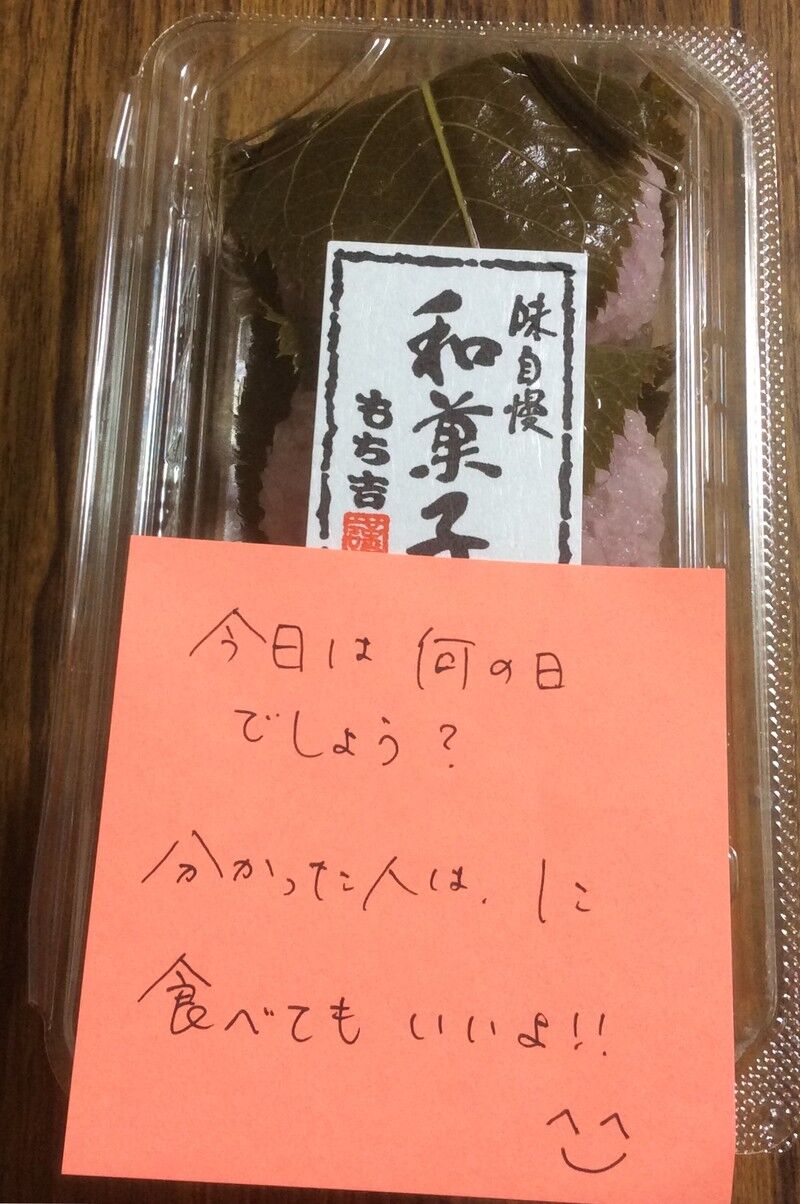 味自慢
和菓子
もち吉
今日は何の日
でしょう?
分かった人は、1こ
食べてもいいよ!!